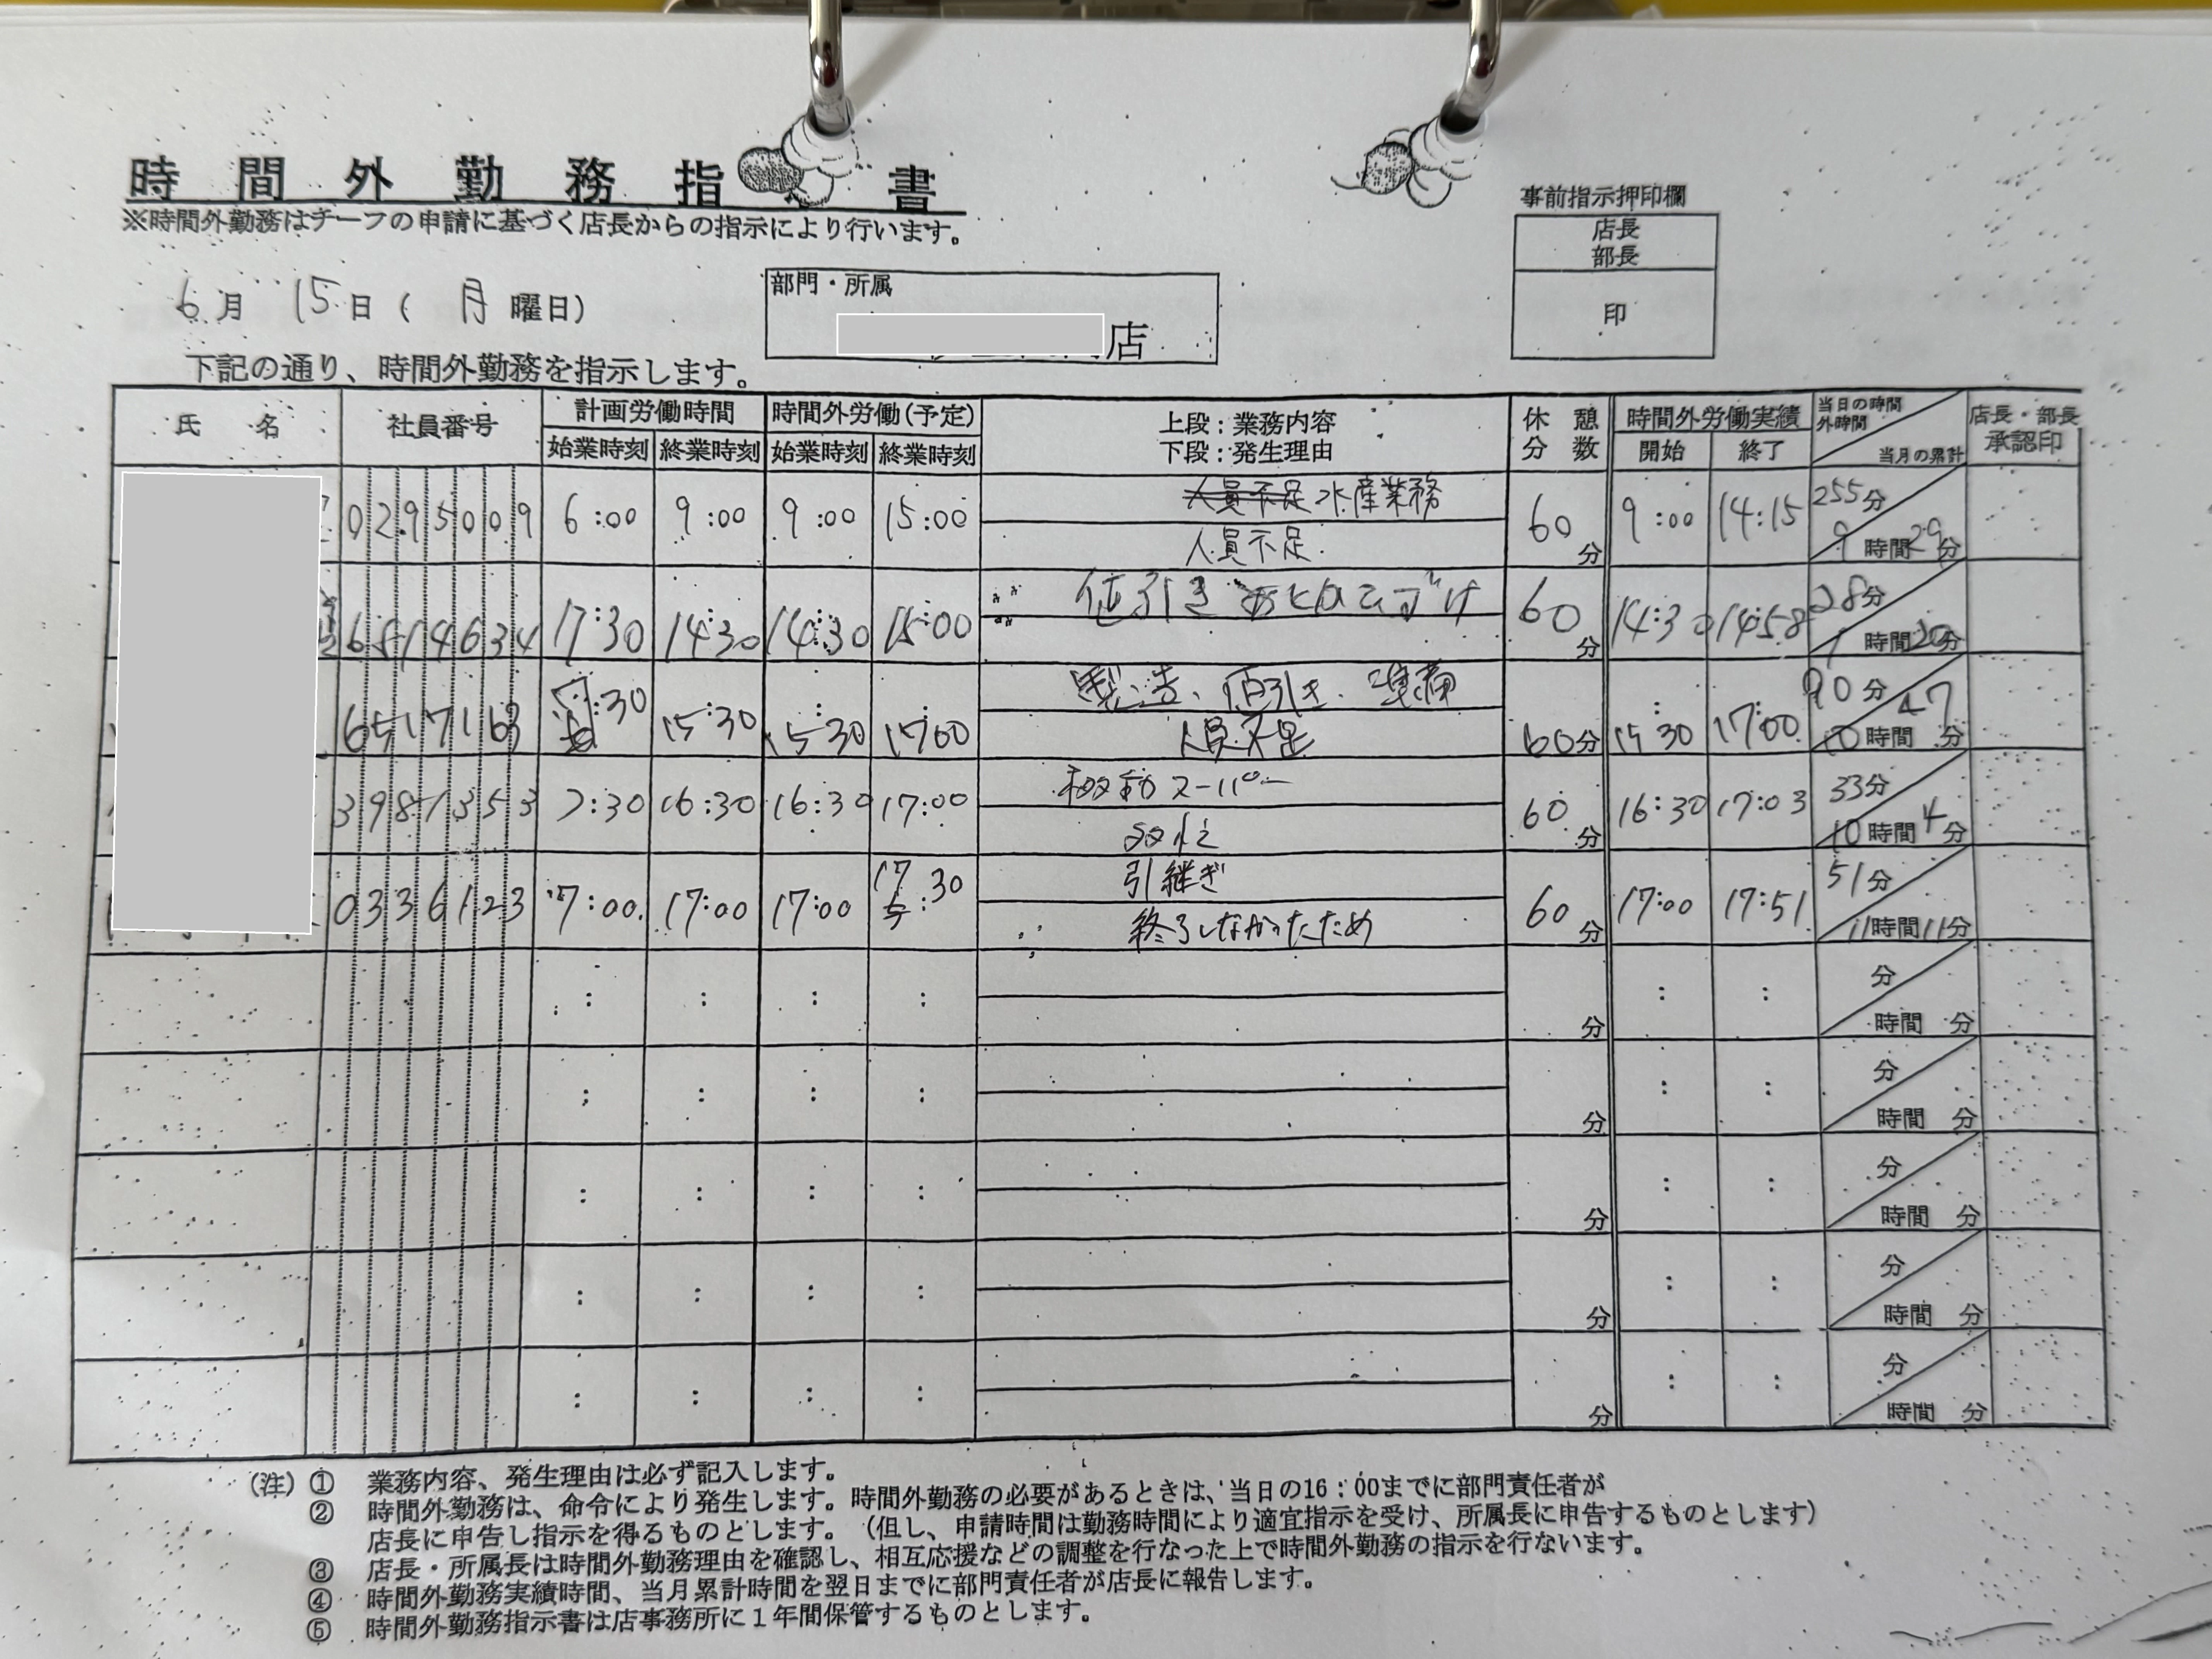 時間外勤務指 書
※時間外勤務はチーフの申請に基づく店長からの指示により行います。
事前指示押印欄
店長
部長
印
6月 15日( 月 曜日)
部門・所属
店
下記の通り、時間外勤務を指示します。
氏 名 社員番号 計画労働時間 時間外労働(予定) 上段:業務内容 休憩 時間外労働実績 当日の時間外時間 店長・部長
始業時刻 終業時刻 始業時刻 終業時刻 下段:発生理由 分数 開始 終了 当月の累計 承認印
0295009 6:00 9:00 9:00 15:00 人員不足 水産業務 60分 9:00 14:15 255分
人員不足 9時間29分
6514634 17:30 14:30 14:30 15:00 値引き あとかたづけ 60分 14:30 14:58 28分
1時間20分
6517163 :30 15:30 15:30 17:00 製造、値引き、準備 60分 15:30 17:00 90分
人員不足 10時間47分
3981353 7:30 16:30 16:30 17:00 60分 16:30 17:03 33分
10時間4分
0336123 7:00 17:00 17:00 17:30 引継ぎ 60分 17:00 17:51 51分
終了しなかったため 11時間11分
: : : : 分 : : 分
時間 分
: : : : 分 : : 分
時間 分
: : : : 分 : : 分
時間 分
: : : : 分 : : 分
時間 分
: : : : 分 : : 分
時間 分
(注) ① 業務内容、発生理由は必ず記入します。
② 時間外勤務は、命令により発生します。時間外勤務の必要があるときは、当日の16:00までに部門責任者が
店長に申告し指示を得るものとします。(但し、申請時間は勤務時間により適宜指示を受け、所属長に申告するものとします)
③ 店長・所属長は時間外勤務理由を確認し、相互応援などの調整を行なった上で時間外勤務の指示を行ないます。
④ 時間外勤務実績時間、当月累計時間を翌日までに部門責任者が店長に報告します。
⑤ 時間外勤務指示書は店事務所に1年間保管するものとします。